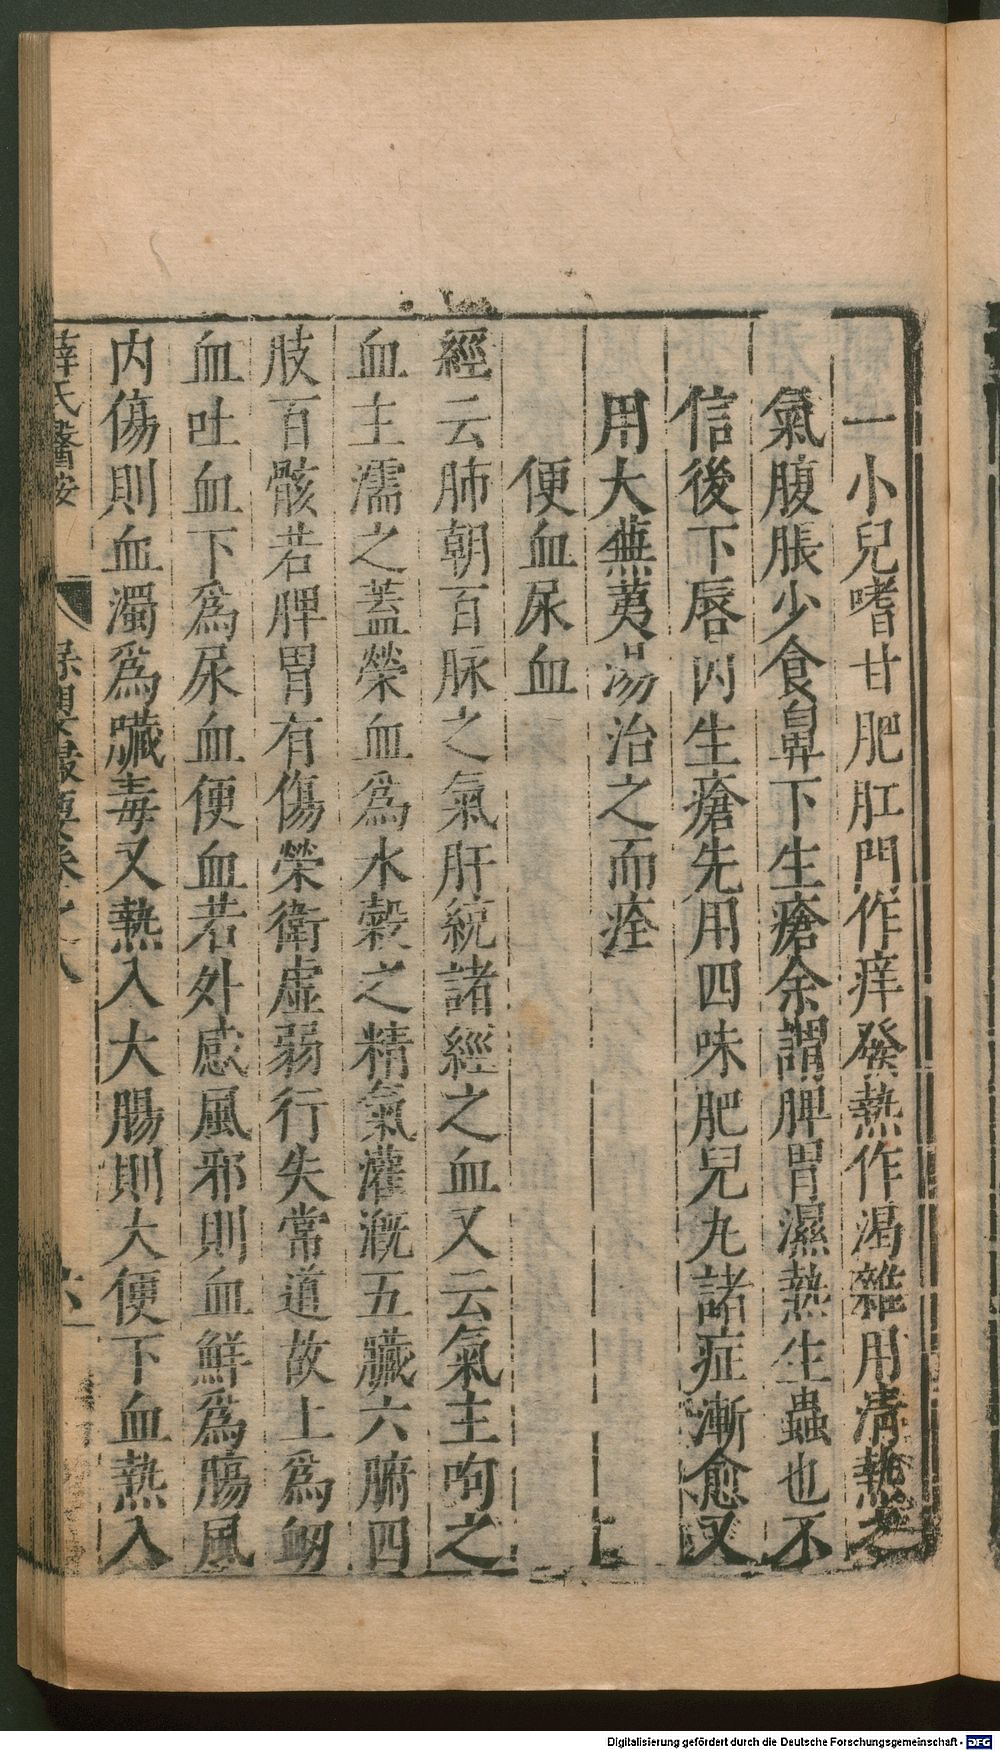 一小兒嗜甘肥肛門作痒發熱作渴雜用清熱之
氣腹脹少食鼻下生瘡余謂脾胃濕熱生蟲也不
信後下唇內生瘡先用四味肥兒丸諸症漸愈又
用大蕪荑湯治之而痊
便血尿血
經云肺朝百脉之氣肝統諸經之血又云氣主呴之
血主濡之蓋榮血爲水穀之精氣灌漑五臟六腑四
肢百骸若脾胃有傷榮衛虛弱行失常道故上爲衂
血吐血下爲尿血便血若外感風邪則血鮮爲腸風
內傷則血濁爲臟毒又熱入大腸則大便下血熱入
薛氏醫按
保嬰撮要卷之八
Digitalisierung gefördert durch die Deutsche Forschungsgemeinschaft - DFG